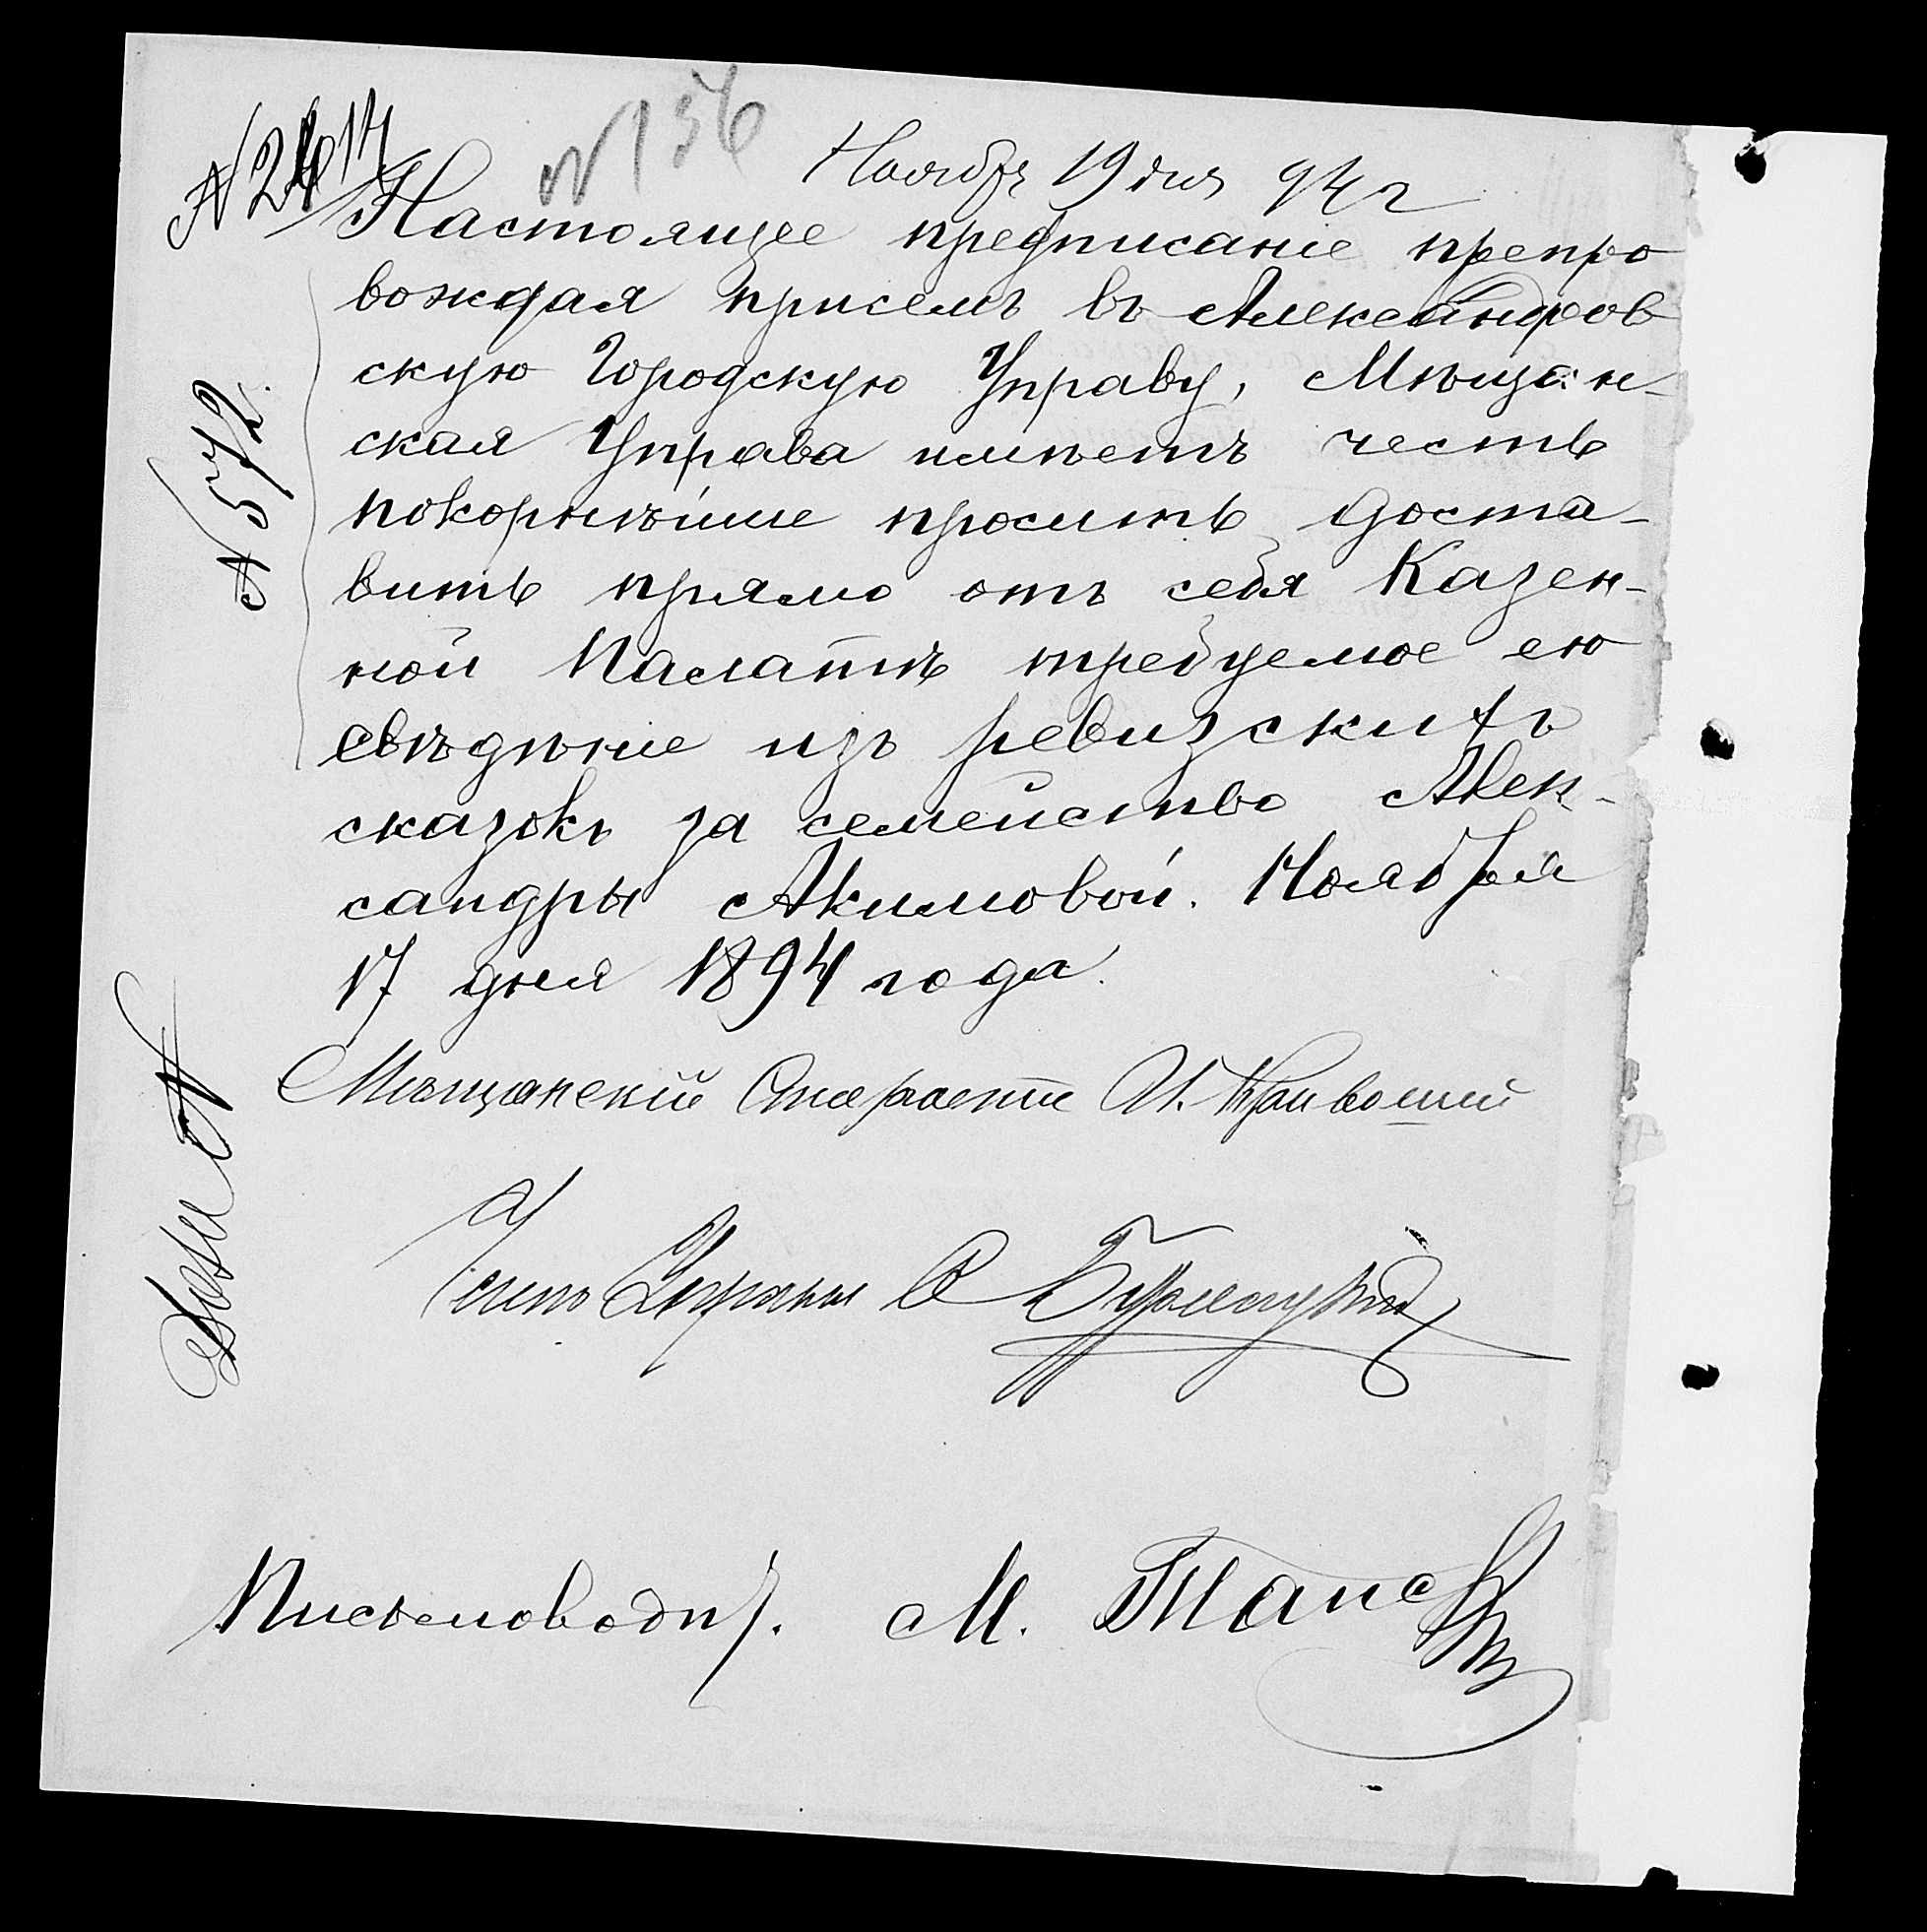 № 2617
№ 156
Ноября 19 дня 94 г
Настоящее предписаніе препро
вождая присемъ въ Александров
скую Городскую Управу, Мѣщан-
ская Управа имѣетъ честь
покорнѣйше просить доста-
вить прямо отъ себя Казен-
ной Палатѣ требуемое ею
свѣдѣніе изъ ревизскихъ
сказокъ за семейство Алек-
сандры Акимовой. Ноября
17 дня 1894 года.
№ 572.
Мѣщанскій Староста И. Кривошей
Членъ Управы
Письмоводи.
М.